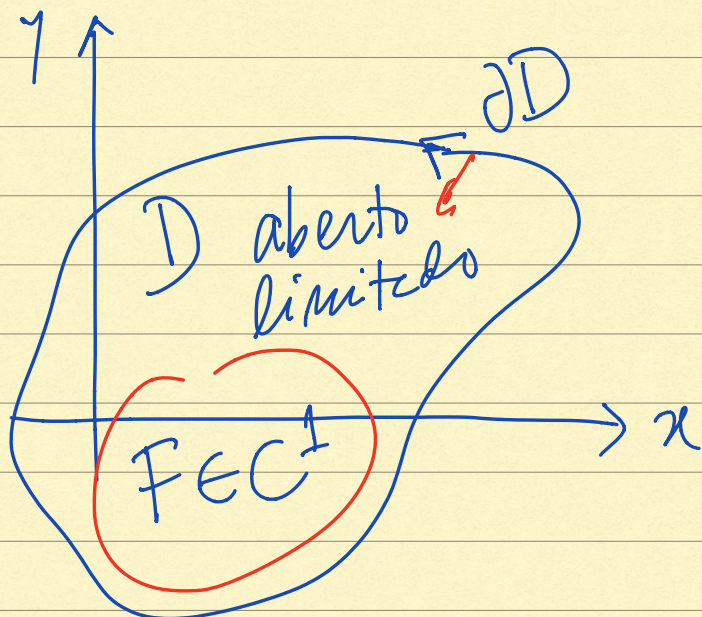 y
∂D
D aberto
limitado
F ∈ C¹
x